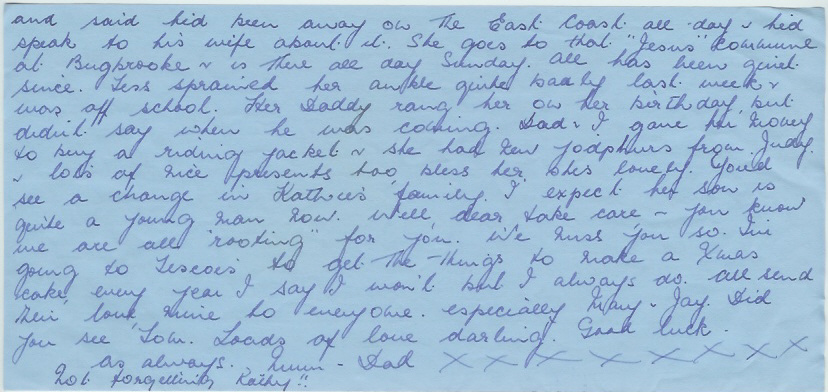 and said hid been away on the East Coast all day & hid
speak to his wife about it. She goes to that "Jesus" commune
at Bugbrooke & is there all day Sunday. All has been quiet
since. Tess sprained her ankle quite badly last week &
was off school. Her Daddy rang her on her birthday, but
didn't say when he was coming. Dad & I gave her money
to buy a riding jacket & she had new jodphurs from Judy
& lots of nice presents too, bless her, she's lovely. You'd
see a change in Kathie's family. I expect her son is
quite a young man now. Well dear take care - you know
we are all "rooting" for you. We miss you so. I'm
going to Tesco's to get the things to make a Xmas
cake, every year I say I won't but I always do. All send
their love mine to everyone. especially Mary & Jay. Did
you see Tom. Loads of love darling. Good luck.
as always. Mum - Dad X X X X X X X X
Not forgetting Kathy!!